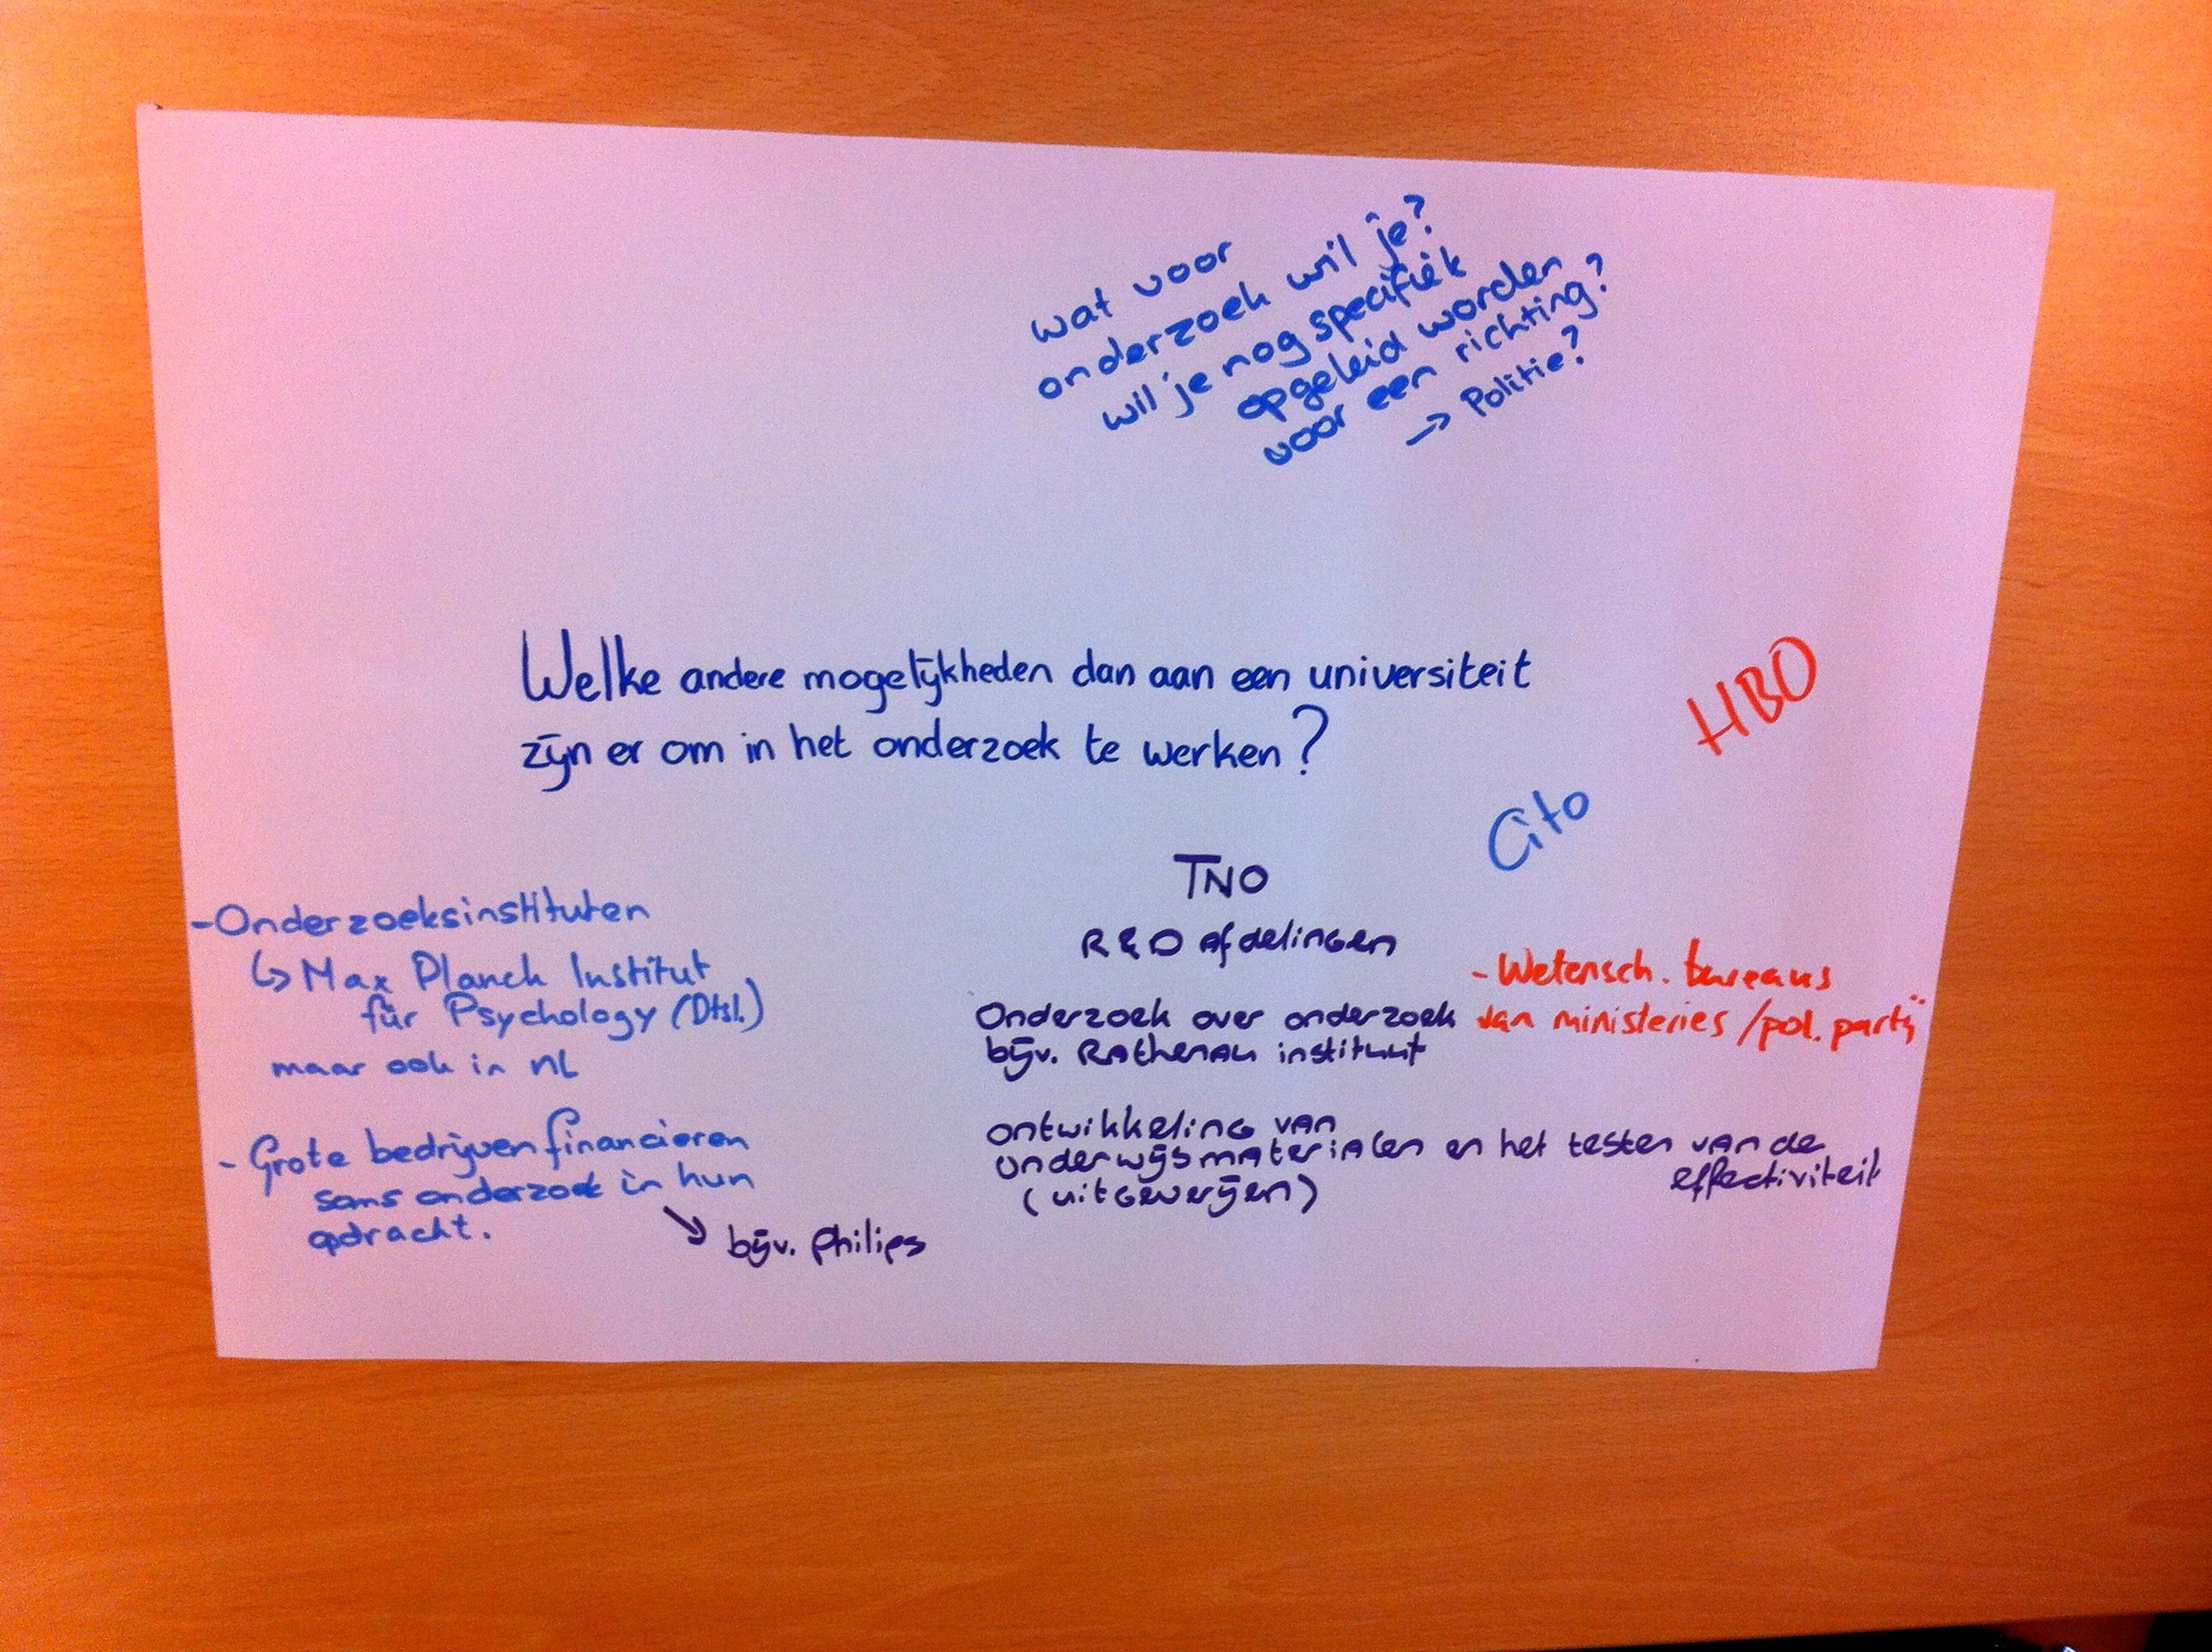 wat voor
onderzoek wil je?
wil je nog specifiek
opgeleid worden
voor een richting?
→ Politie?
Welke andere mogelijkheden dan aan een universiteit
zijn er om in het onderzoek te werken?
HBO
Cito
TNO
R&D Afdelingen
- Wetensch. bureaus
van ministeries / pol. partij
Onderzoek over onderzoek
bijv. Rathenau instituut
ontwikkeling van
onderwijsmaterialen en het testen van de
effectiviteit
(uitgeverijen)
- Onderzoeksinstituten
↳ Max Planck Institut
für Psychology (Dtsl.)
maar ook in NL
- Grote bedrijven financieren
soms onderzoek in hun
opdracht.
↘ bijv. Philips